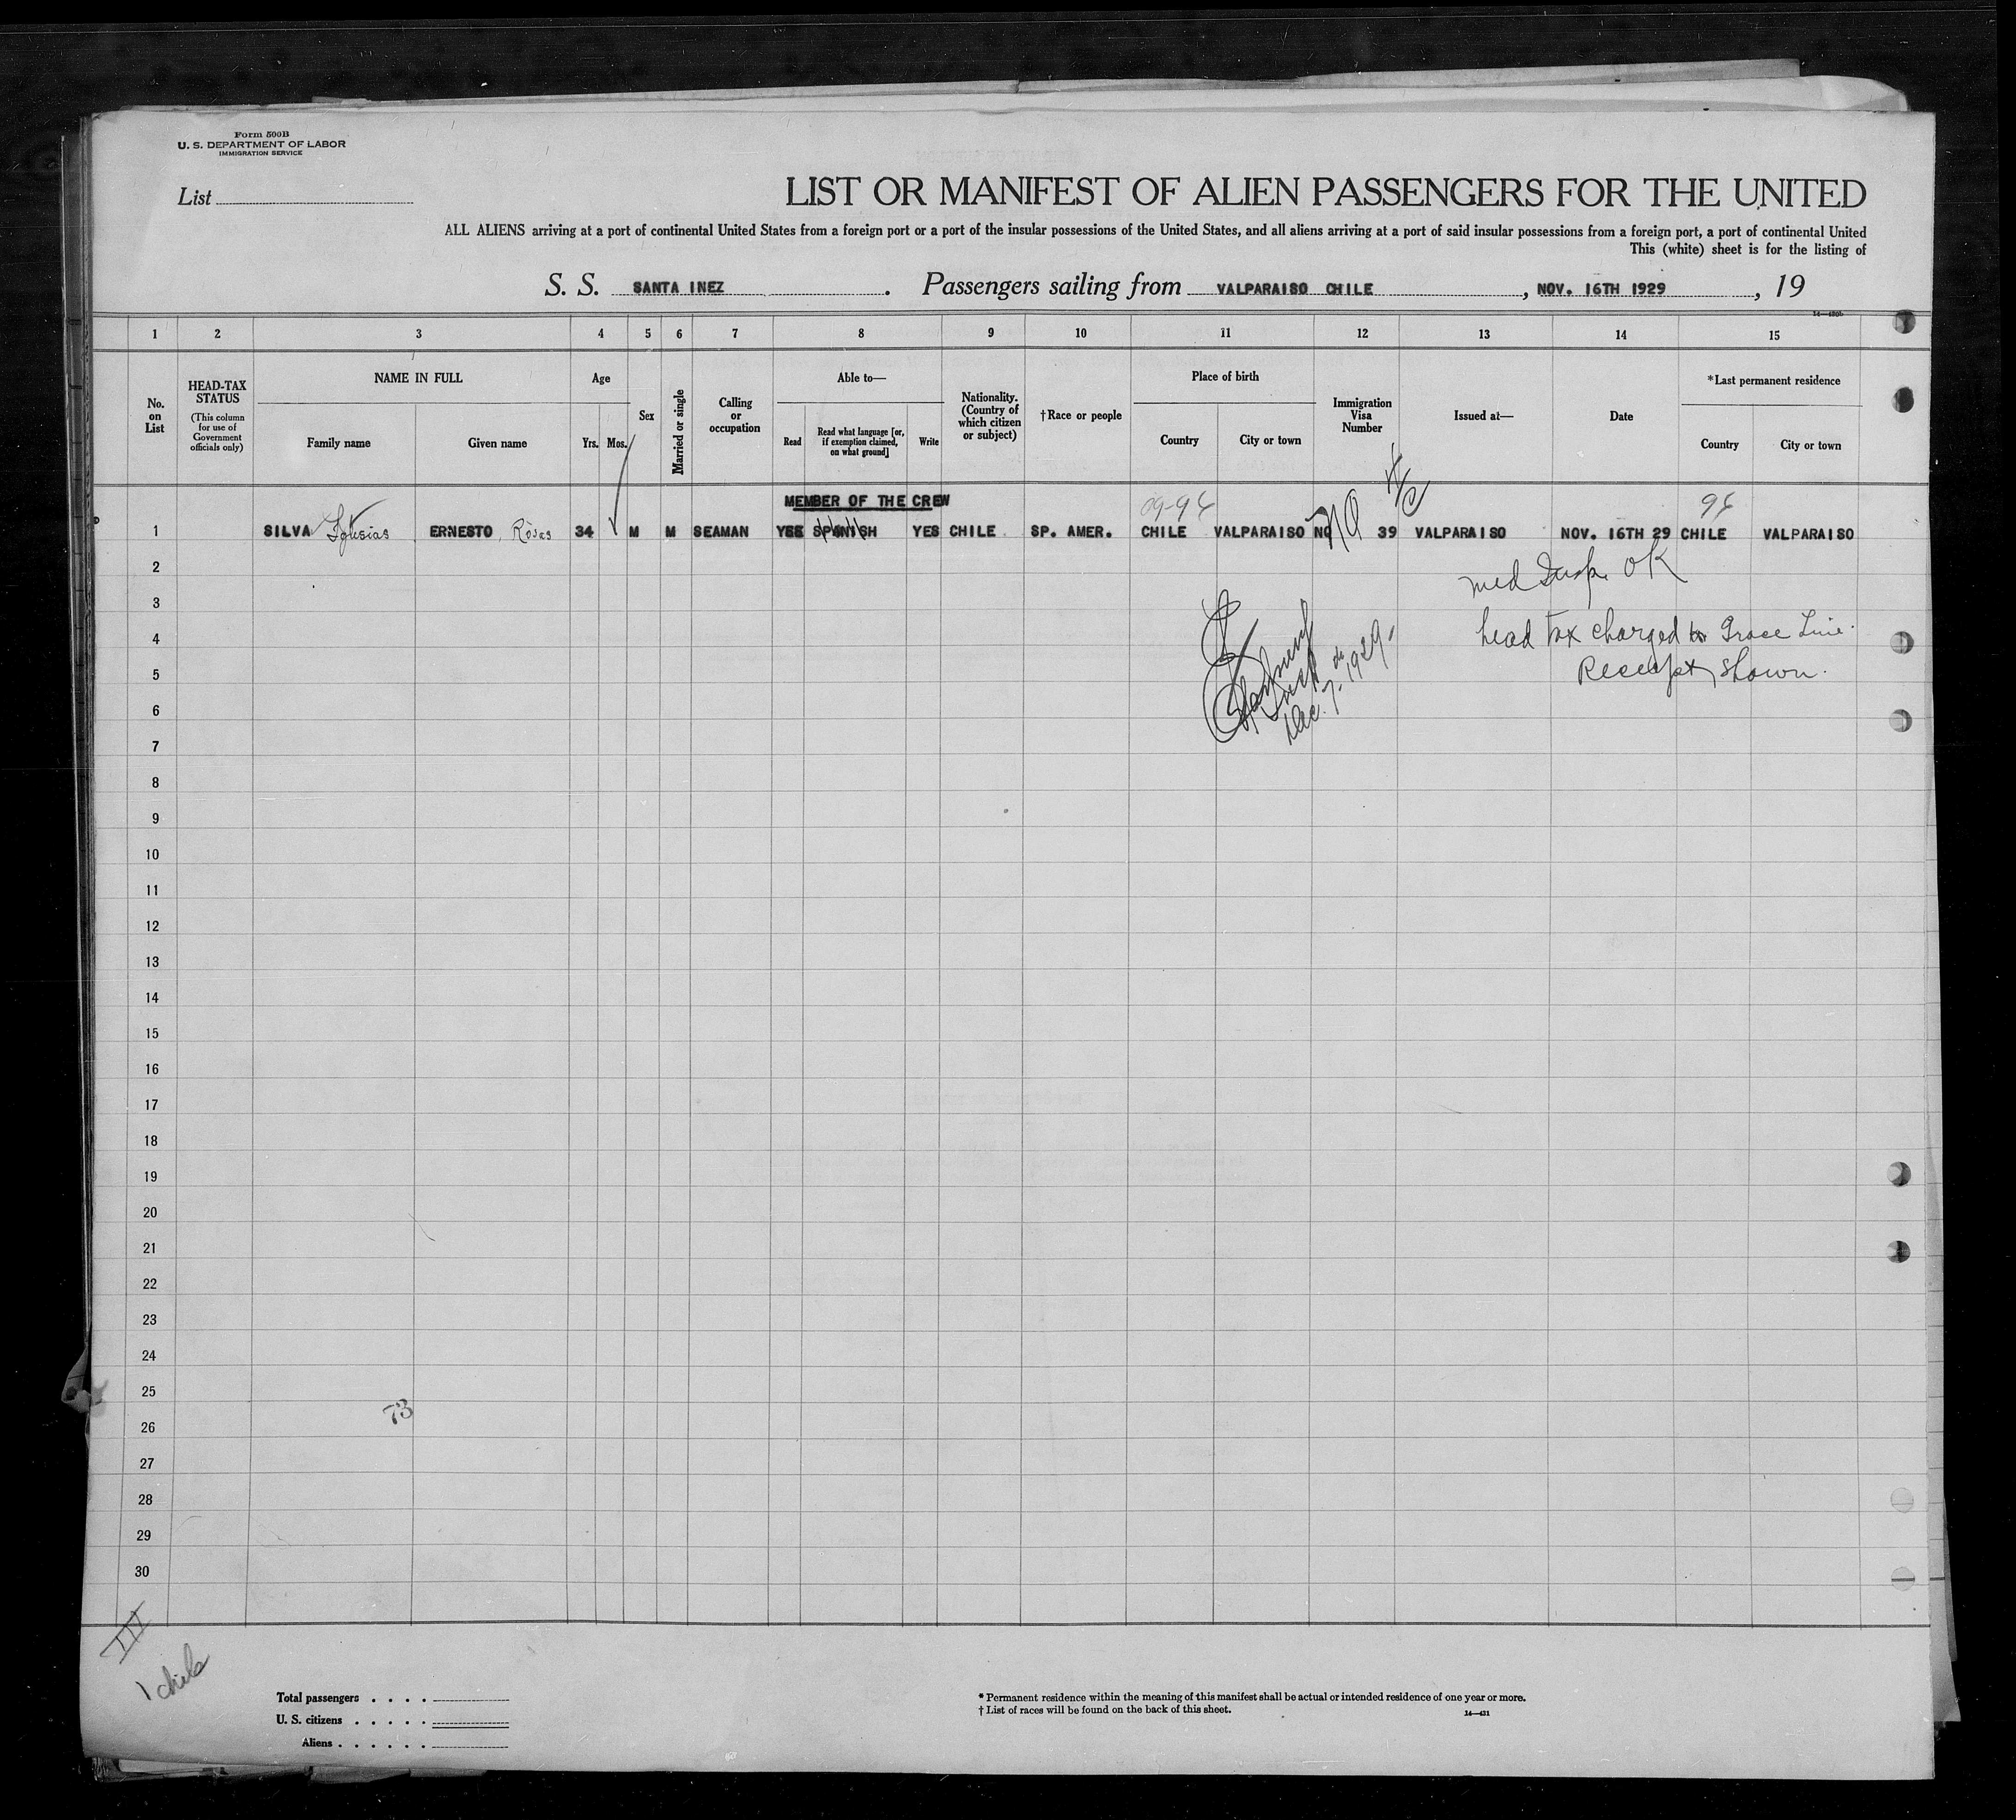 Form 500B
U. S. DEPARTMENT OF LABOR
IMMIGRATION SERVICE
List
LIST OR MANIFEST OF ALIEN PASSENGERS FOR THE UNITED
ALL ALIENS arriving at a port of continental United States from a foreign port or a port of the insular possessions of the United States, and all aliens arriving at a port of said insular possessions from a foreign port, a port of continental United
This (white) sheet is for the listing of
S. S. SANTA INEZ . Passengers sailing from VALPARAISO CHILE , NOV. 16TH 1929 , 19
1 2 3 4 5 6 7 8 9 10 11 12 13 14 15
No. on List
HEAD-TAX STATUS
(This column for use of Government officials only)
NAME IN FULL
Family name
Given name
Age
Yrs.
Mos.
Sex
Married or single
Calling or occupation
Able to—
Read
Read what language [or, if exemption claimed, on what ground]
Write
Nationality. (Country of which citizen or subject)
†Race or people
Place of birth
Country
City or town
Immigration Visa Number
Issued at—
Date
*Last permanent residence
Country
City or town
MEMBER OF THE CREW
1 SILVA Iglesias ERNESTO Rosas 34 M M SEAMAN YES SPANISH YES CHILE SP. AMER. CHILE VALPARAISO NO 39 VALPARAISO NOV. 16TH 29 CHILE VALPARAISO
NQ
2
med Insp. OK
3
4
head tax charged to Grace Line.
5
Receipt shown.
Dec. 7, 1929
6
7
8
9
10
11
12
13
14
15
16
17
18
19
20
21
22
23
24
25
73
26
27
28
29
30
III
1 chile
Total passengers . . . .
U. S. citizens . . . . .
Aliens . . . . . .
* Permanent residence within the meaning of this manifest shall be actual or intended residence of one year or more.
† List of races will be found on the back of this sheet.
14—421